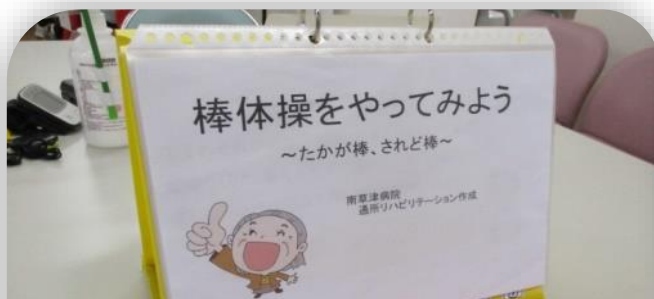 棒体操をやってみよう
～たかが棒、されど棒～
南草津病院
通所リハビリテーション作成